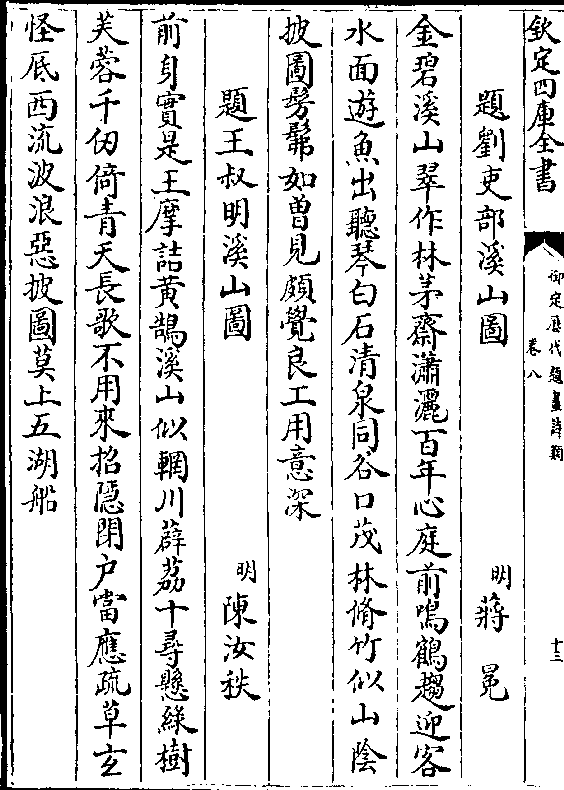 欽定四庫全書
御定歷代題畫詩類
卷八
十三
題劉吏部溪山圖
明
蔣冕
金碧溪山翠作林茅齋瀟灑百年心庭前鳴鶴趨迎客
水面遊魚出聽琴白石清泉同谷口茂林脩竹似山陰
披圖髣髴如曽見頗覺良工用意深
題王叔明溪山圖
明
陳汝秩
前身實是王摩詰黄鵠溪山似輞川薜荔十尋懸綠樹
芙蓉千仞倚青天長歌不用來招隠閉户當應疏草玄
怪底西流波浪惡披圖莫上五湖船